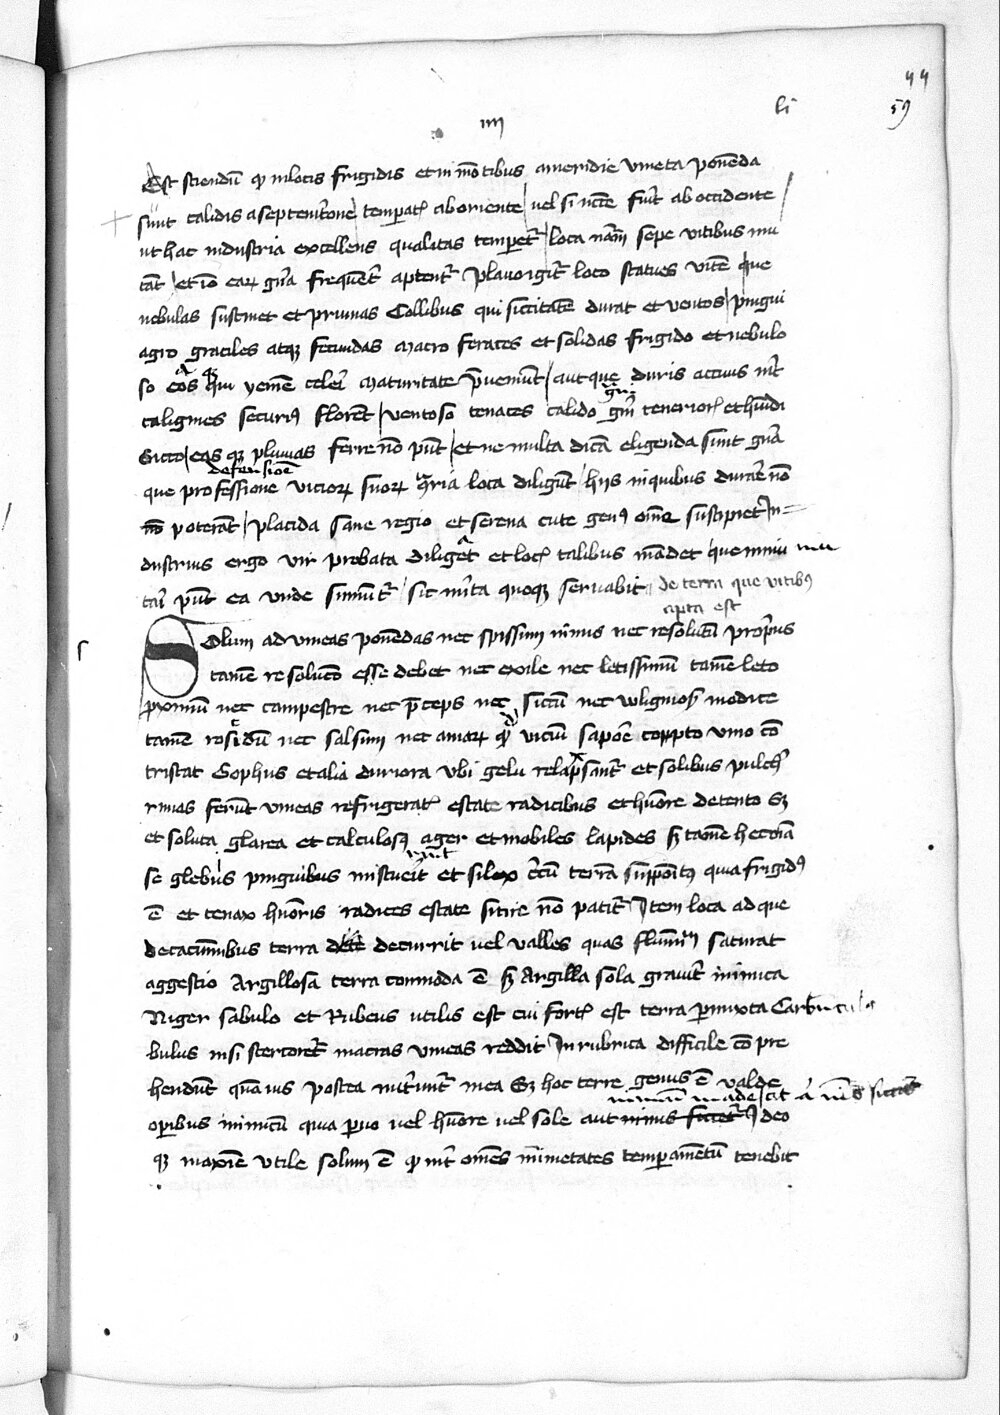 44
li
59
iiii
Est sciendū q̄ in locis frigidis et in mōtibus a meridie vineta ponēda
sunt calidis a septentrione temperat᷒ ab oriente vel si necē fuīt ab occidente
ut hac industria excellens qualitas temperet᷒ loca nam̄ sepe vitibus mu
tāt et iō eaꝝ gn̄a frequēt᷒ aptent᷒ plano igit᷒ loco statues vitē que
nebulas sustinet et pruinas Collibus qui siccitatē durat et ventos pingui
agro graciles atqꝫ fecundas macro feraces et solidas frigido et nebulo
so eas que yemē celeri maturitate p̄veniunt aut que duris acinis int᷒
caligines securiꝰ florēt ventoso tenaces calido gn̄i tenerioris et hūidi
Sicco eas q̄ pluuias ferre nō pn̄t et ne multa dicā eligenda sunt gn̄a
defensione
que professione vicioꝝ suoꝝ 9traria loca diligūt hijs in quibus durare nō
poterāt placida sane regio et serena cute genꝰ om̄e suscipiet In=
dustrius ergo vir probata diliget et locis talibus mādet que minīe mu
tari pn̄t ea unde sumūt᷒ sic mīta quoqꝫ servabit de terra que vitibꝰ
apta est
Solum ad vineas ponendas nec spissum nimis nec resolutū propius
tamē resoluto esse debet nec exile nec letissimū tamē leto
proximū nec campestre nec p̄ceps nec siccū nec vliginosū modice
tamē rosidū nec salsum nec amaꝝ qd̄ viciū sapore corrupto vino cō
tristat Tophus et alia duriora ubi gelu relaxant᷒ et solibus pulcher
rimas ferūt vineas refrigeratis estate radicibus et hūore detento Sꝫ
et soluta glarea et calculosꝰ ager et mobiles lapides sꝫ tamē hec oīa
se glebis pinguibus miscuerīt et silex circū terrā suppositꝰ quia frigidꝰ
ē et tenax hūoris radices estate sitire nō patit᷒ Item loca ad que
de cacuminibus terra decurrit vel valles quas fluminū saturat
aggestio Argillosa terra commoda ē sꝫ Argilla sola gravit᷒ inimica
Niger sabulo et Rubeus utilis est cui fortis est terra permixta Carbuncu
bulus nisi stercoret᷒ macras vineas reddit In rubrica difficile cōpre
hendūt quāuis postea nutriunt᷒ mea Sꝫ hoc terre genus ē valde
nimium madescit
operibus inimicū quia parvo vel hūore vel sole aut nimis siccet᷒ Ideo
qꝫ maxime utile solum ē qd̄ int᷒ om̄es nimietates temperamentū tenebit